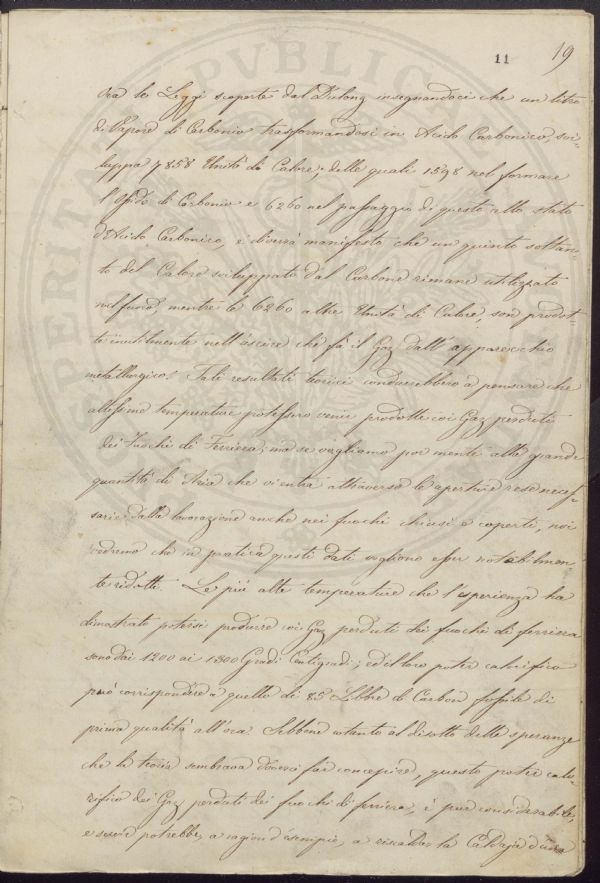 11 19
Ora le Leggi scoperte dal Dulong insegnandoci che un litro
di Vapore di Carbonio trasformandosi in Acido Carbonico, svi-
luppa 7858 Unità di Calore, delle quali 1598 nel formare
l'Ossido di Carbonio e 6260 nel passaggio di questo allo stato
d'Acido Carbonico, e diverrà manifesto che un quinto soltan-
to del Calore sviluppato dal Carbone rimane utilizzato
nel fuoco, mentre le 6260 altre Unità di Calore, son prodot-
te inutilmente nell'uscire che fà il Gaz dall'apparecchio
metallurgico. Tali resultati teorici condurrebbero a pensare che
altissime temperature potessero venir prodotte coi Gaz perduti
dei Fuochi di Ferriera; ma se vogliamo por mente alla grande
quantità di Aria che vi entra attraverso le aperture rese neces-
sarie dalla lavorazione anche nei fuochi chiusi e coperti, noi
vedremo che in pratica questi dati vogliono esser notabilmen-
te ridotti. Le più alte temperature che l'esperienza ha
dimostrato potersi produrre coi Gaz perduti dei fuochi di ferriera
sono dai 1200 ai 1300 Gradi Centigradi; ed il loro poter calorifico
può corrispondere a quello di 85 Libbre di Carbon fossile di
prima qualità all'ora. Sebbene cotanto al disotto delle speranze
che la teoria sembrava doverci far concepire, questo poter calo-
rifico dei Gaz perduti dei fuochi di ferriera, è pur considerabile,
e potrebbe, a ragion d'esempio, a riscaldar la Caldaja d'una
PVBLICA